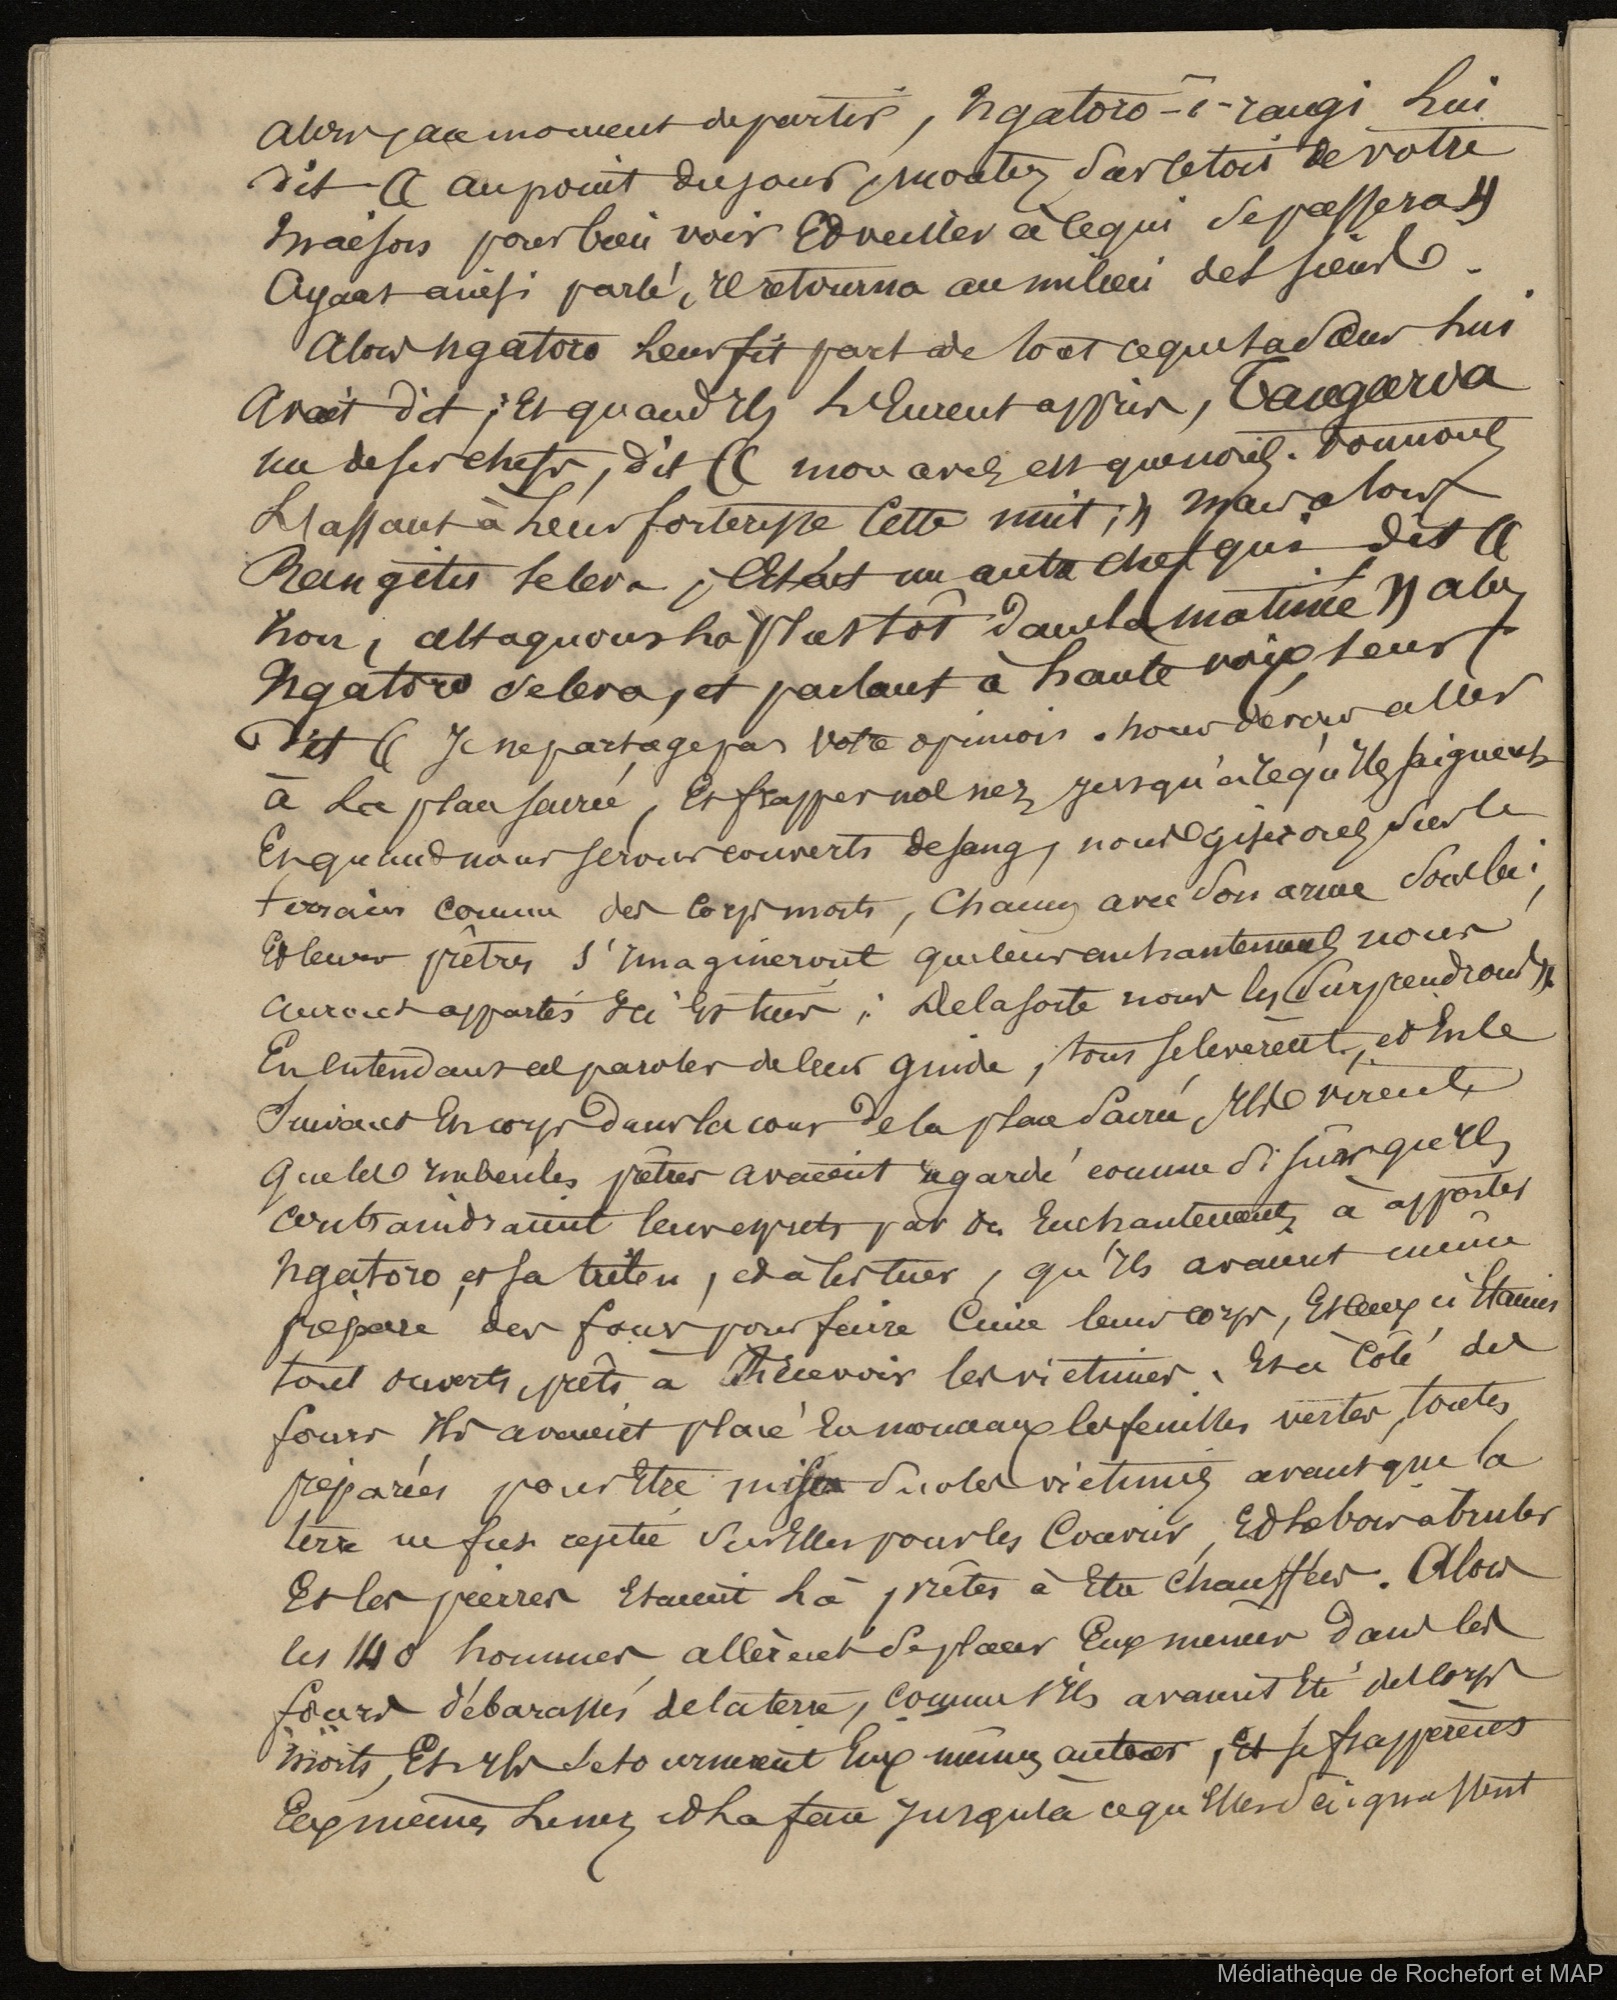 alors, au moment de partir, Ngatoro-i-rangi lui
dit (( au point du jour, montez sur le toit de votre
maison pour bien voir et veiller à ce qui se passera ))
Ayant ainsi parlé, il retourna au milieu des siens.
Alors Ngatoro leur fit part de tout ce que sa sœur lui
avait dit ; et quand ils l'eurent appris, Tangaroa
un de ses chefs, dit (( mon avis est que nous donnons
l'assaut à leur forteresse cette nuit ; )) mais alors
Rangitu se leva, c'était un autre chef qui dit ((
non, attaquons la plustôt dans la matinée )) alors
Ngatoro se leva, et parlant à haute voix, leur
dit (( Je ne partage pas votre opinion. nous devons aller
à la place sacrée, et frapper nos nez jusqu'à ce qu'ils saignent
Et quand nous serons couverts de sang, nous giserons sur le
terrain comme des corps morts, chacun avec son arme sous lui,
Et leurs prêtres s'imagineront que leurs enchantements nous
auront apportés ici et tués ; de la sorte nous les surprendrons ))
En entendant ces paroles de leur guide, tous se levèrent, et en le
suivant en corps dans la cour de la place sacrée, ils virent
que les imbéciles prêtres avaient regardé comme si sûr qu'ils
contraindraient leurs esprits par des enchantements à apporter
Ngatoro, et sa tribu, et à les tuer, qu'ils avaient même
préparé des fours pour faire cuire leurs corps, et ceux ci étaient
tout ouverts, prêts à recevoir les victimes. et à côté des
fours ils avaient placé en monceaux les feuilles vertes, toutes
préparées pour être mises sur les victimes avant que la
terre ne fut rejetée sur elles pour les couvrir, et le bois à bruler
Et les pierres étaient là, prêtes à être chauffées. Alors
les 140 hommes allèrent se placer eux memes dans les
fours débarassés de la terre, comme s'ils avaient été des corps
morts, et ils se tournèrent eux mêmes autour, et se frappèrent
eux mêmes le nez et la face jusqu'à ce qu'elles saignassent
Médiathèque de Rochefort et MAP